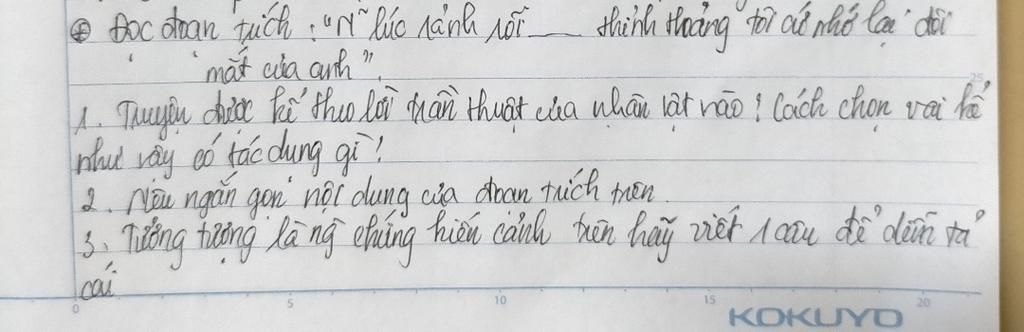 ⊕ Đọc đoạn trích: "N~ lúc rảnh rỗi ___ thỉnh thoảng tôi cứ nhớ lại đôi
mắt của anh".
1. Truyện được kể theo lời trần thuật của nhân vật nào? Cách chọn vai kể
như vậy có tác dụng gì?
2. Nêu ngắn gọn nội dung của đoạn trích trên.
3. Tưởng tượng là ng~ chứng kiến cảnh trên hãy viết 1 câu để diễn tả
cái
25
0 5 10 15 20
KOKUYO